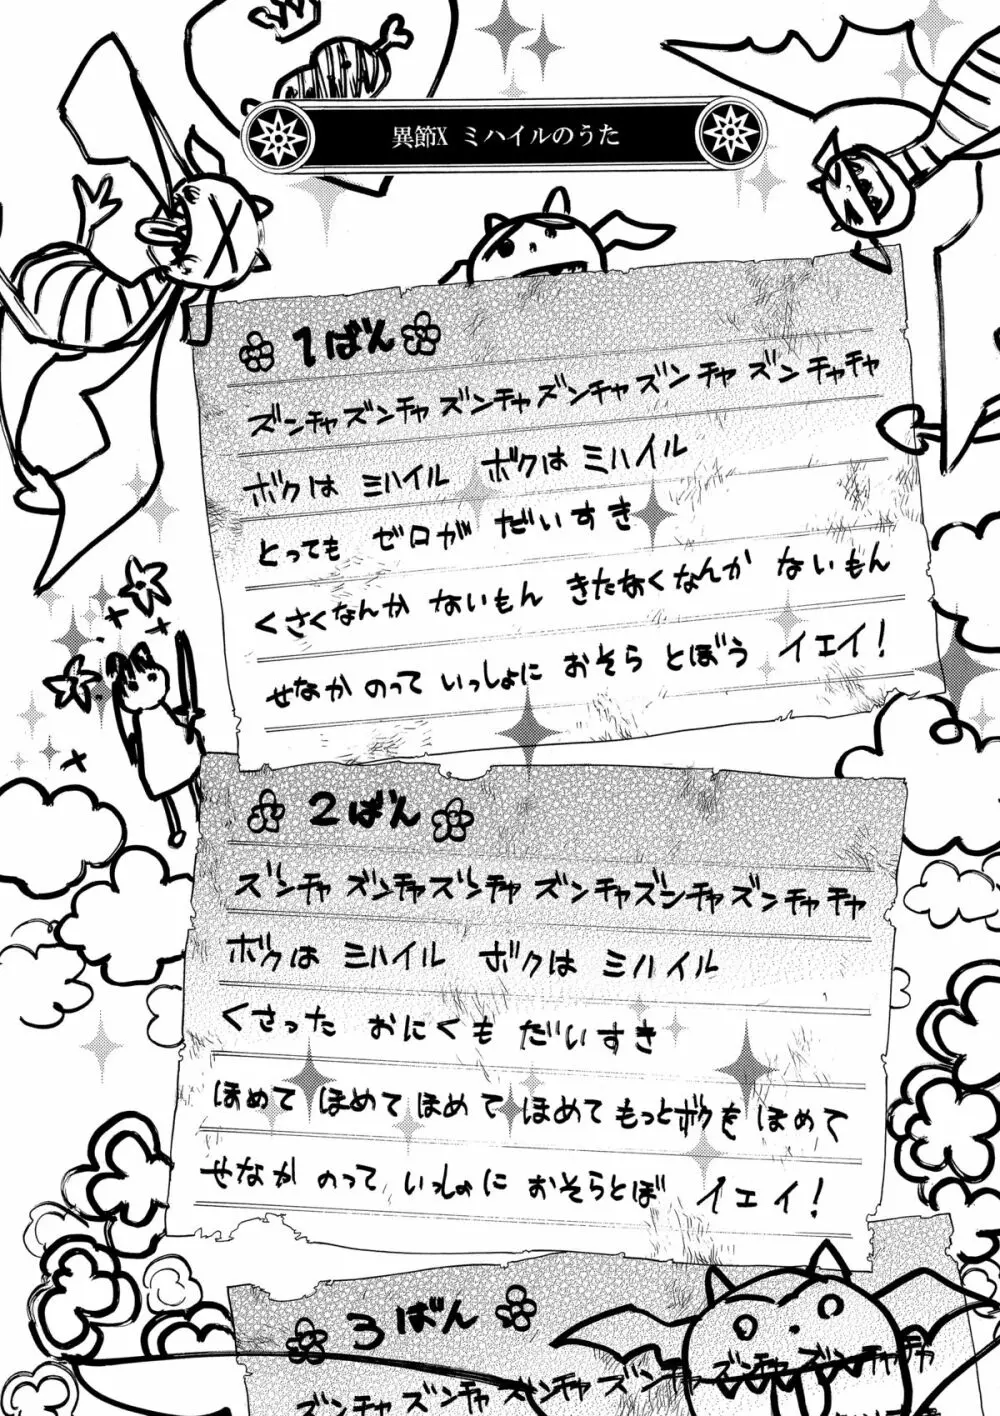 異節X ミハイルのうた
1ばん
ズンチャズンチャズンチャズンチャズンチャズンチャチャ
ボクは ミハイル ボクは ミハイル
とっても ゼロが だいすき
くさくなんか ないもん きたなくなんか ないもん
せなか のって いっしょに おそら とぼう イエイ!
2ばん
ズンチャ ズンチャズンチャ ズンチャズンチャズンチャチャ
ボクは ミハイル ボクは ミハイル
くさった おにくも だいすき
ほめて ほめて ほめて ほめて もっとボクを ほめて
せなか のって いっしょに おそらとぼ イエイ!
3ばん
ズンチャズンチャ ズンチャズンチャ ズンチャ ズンチャチャ